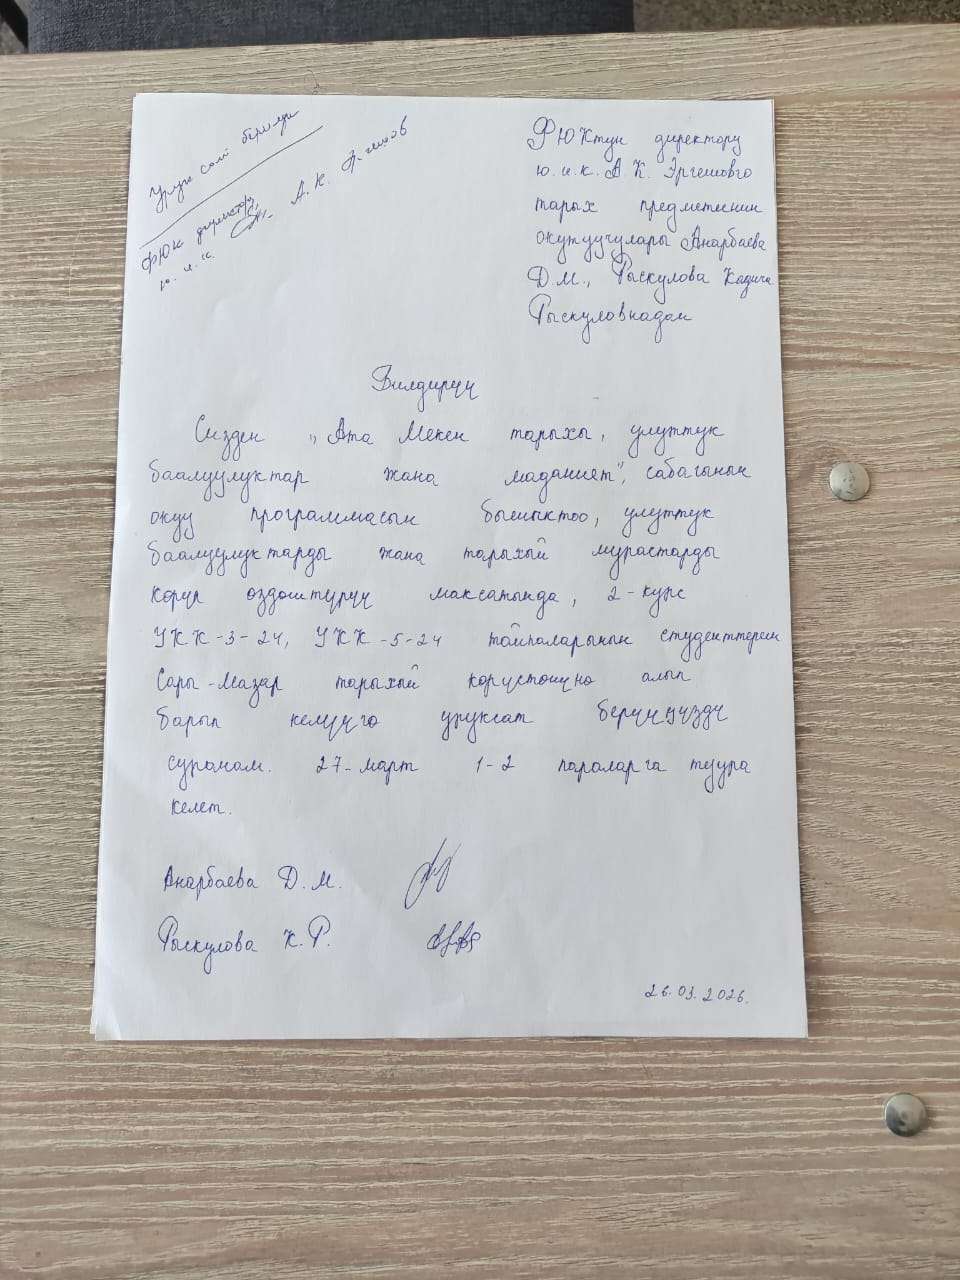 ФЮК директору
ю. и. к. А. К. Эргешов
ФЮКтун директору
ю. и. к. А. К. Эргешовго
тарых предметинин
окутуучулары Анарбаева
Д.М., Рыскулова Кадича
Рыскуловнадан
Билдирүү
Сизден "Ата Мекен тарыхы, улуттук
баалуулуктар жана маданият", сабагынын
окуу программасын бышыктоо, улуттук
баалуулуктарды жана тарыхый мурастарды
көрүп өздөштүрүү максатында, 2-курс
УКК-3-24, УКК-5-24 тайпаларынын студенттерин
Сары-Мазар тарыхый көрүстөнүнө алып
барып келүүгө уруксат берүүңүздү
суранам. 27-март 1-2 параларга туура
келет.
Анарбаева Д. М.
Рыскулова К. Р.
26.03.2026.